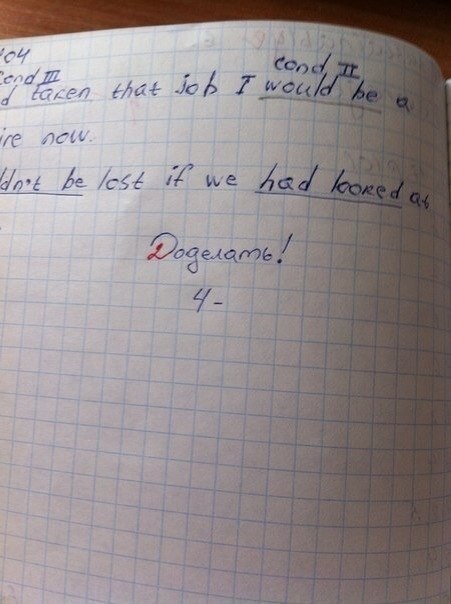 404
cond III cond II
d taken that job I would be a
ire now.
ldn't be lost if we had looked at
Доделать!
4-